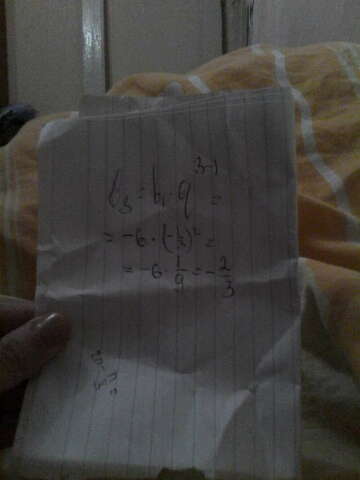 b₃ = b₁ · q³⁻¹ =
= -6 · (-1/3)² =
= -6 · 1/9 = -2/3